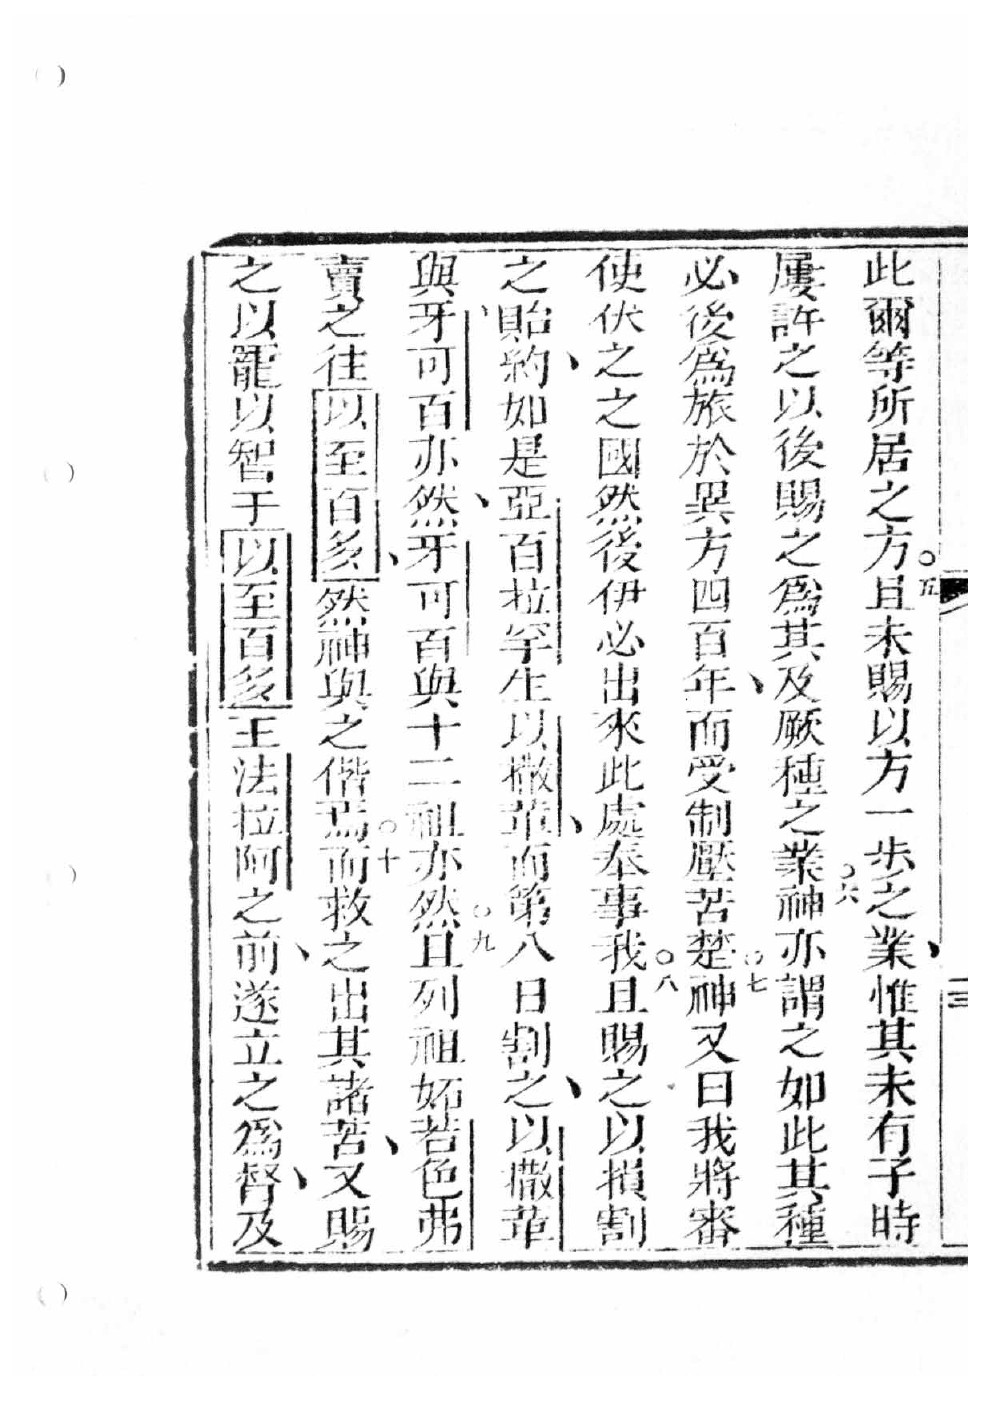 此爾等所居之方○五且未賜以方一步之業惟其未有子時
屢許之以後賜之爲其及厥種之業○六神亦謂之如此其種
必後爲旅於異方四百年而受制壓苦楚○七神又曰我將審
使伏之之國然後伊必出來此處奉事我○八且賜之以損割
之貽約如是亞百拉罕生以撒革而第八日割之以撒革
與牙可百亦然牙可百與十二祖亦然○九且列祖妬若色弗
賣之往以至百多然神與之偕焉○十而救之出其諸苦又賜
之以寵以智于以至百多王法拉阿之前遂立之爲督及
三